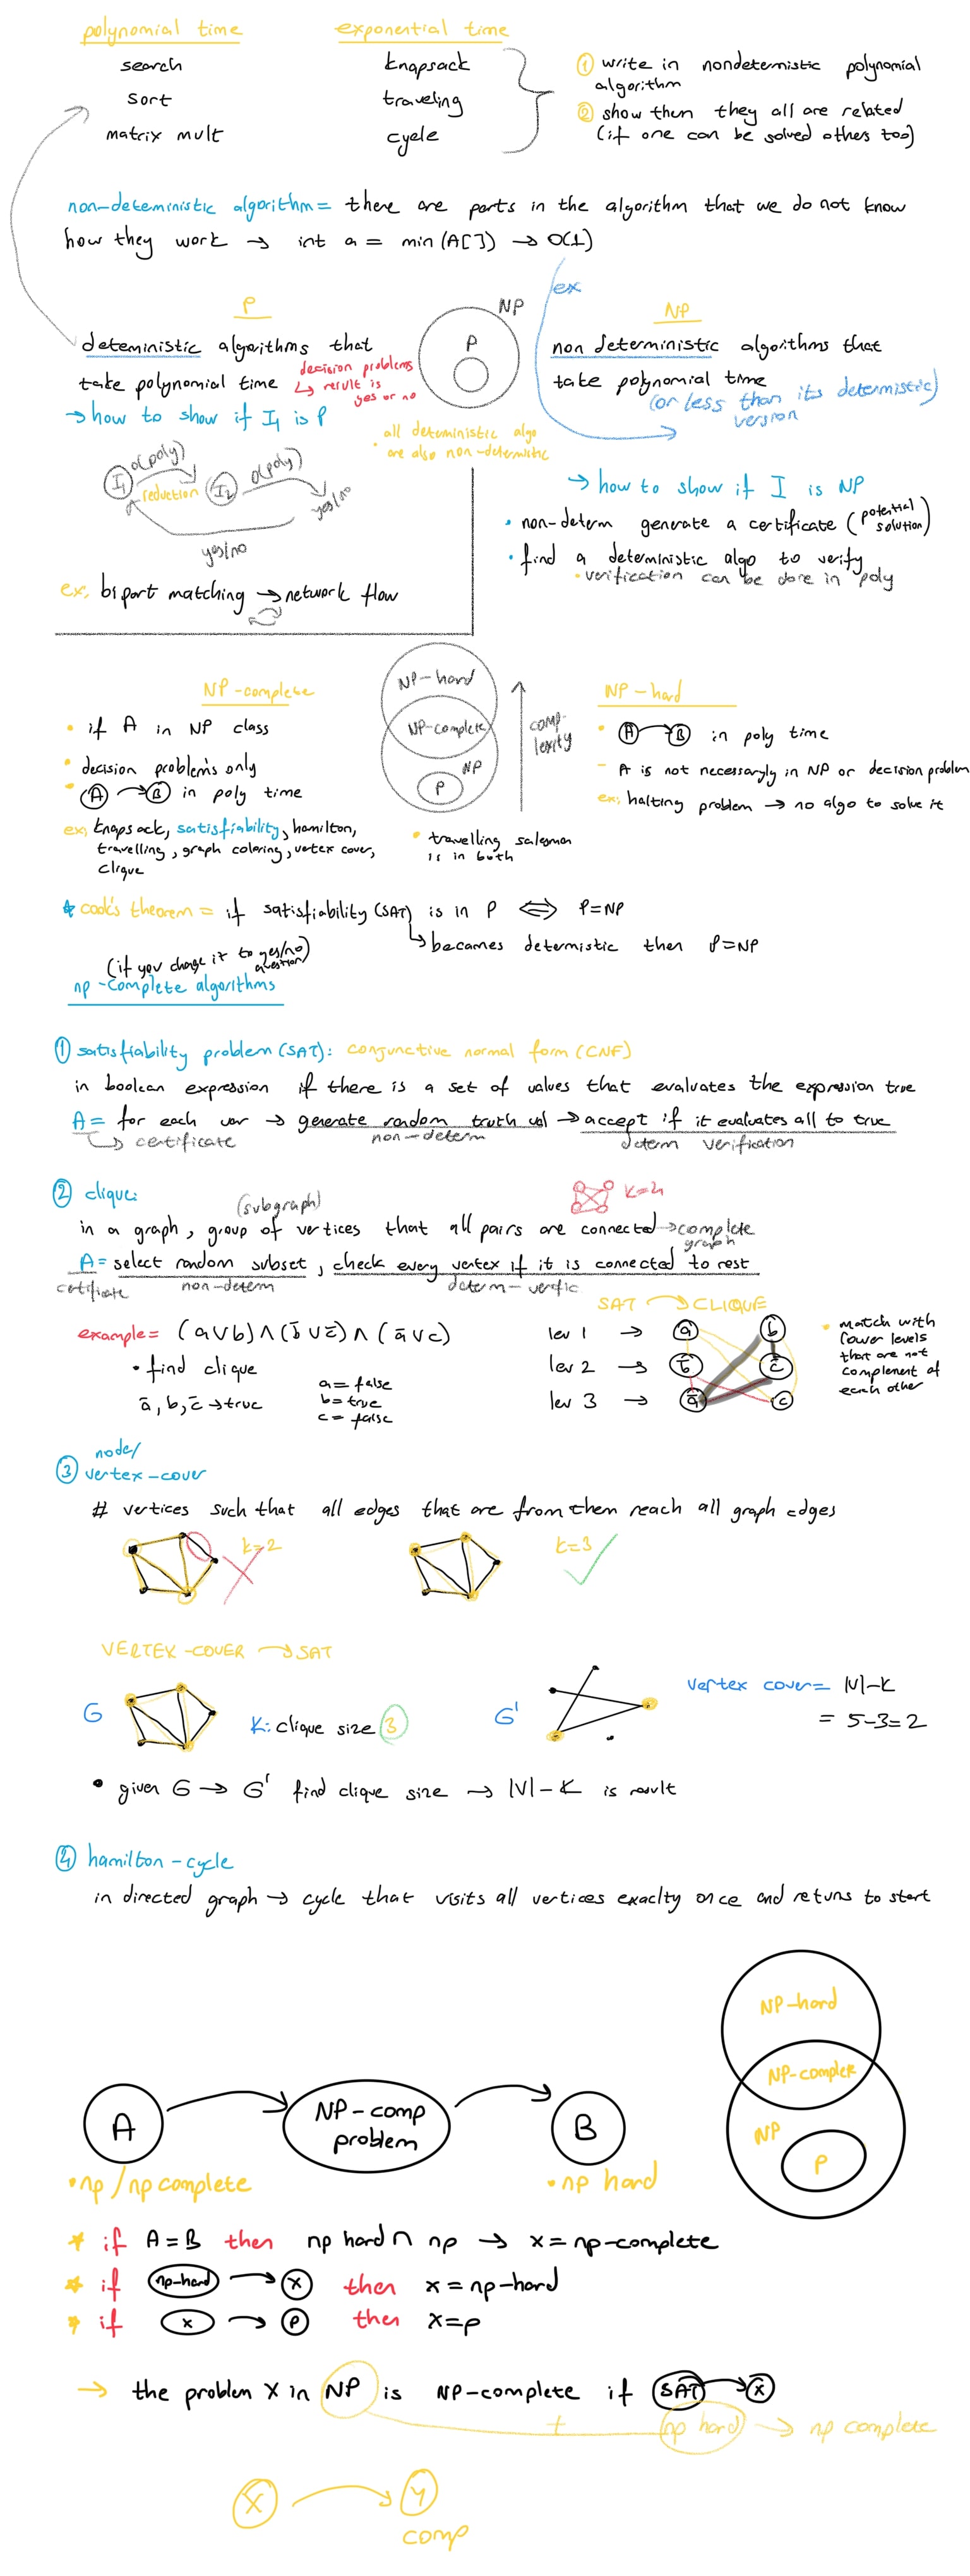 polynomial time
search
sort
matrix mult
exponential time
knapsack
traveling
cycle
① write in nondetermistic polynomial
algorithm
② show then they all are related
(if one can be solved others too)
non-deteministic algorithm = there are parts in the algorithm that we do not know
how they work → int a = min(A[]) → O(1)
ex
P
deteministic algorithms that
take polynomial time
decision problems
↳ result is
yes or no
→ how to show if I1 is P
I1
O(poly)
reduction
I2
O(poly)
yes/no
yes/no
ex. bipart matching → network flow
NP
P
• all deteministic algo
are also non-determistic
NP
non deterministic algorithms that
take polynomial time
(or less than its determistic)
version
→ how to show if I is NP
• non-determ generate a certificate (potential
solution)
• find a deterministic algo to verify
• verification can be done in poly
NP-complete
• if A in NP class
• decision problems only
• A → B in poly time
ex, knapsack, satisfiability, hamilton,
travelling, graph coloring, vertex cover,
clique
NP-hard
NP-complete
NP
P
comp-
lexity
• travelling salesman
is in both
NP-hard
• A → B in poly time
- A is not necessarily in NP or decision problem
ex: halting problem → no algo to solve it
* cook's theorem = if satisfiability (SAT) is in P ⟺ P=NP
↳ becames determistic then P=NP
(if you change it to yes/no
question)
np-complete algorithms
① satisfiability problem (SAT): conjunctive normal form (CNF)
in boolean expression if there is a set of values that evaluates the expression true
A = for each var → generate random truth val → accept if it evaluates all to true
↳ certificate
non-determ
determ verification
② clique:
(subgraph)
k=4
in a graph, group of vertices that all pairs are connected → complete
graph
A = select random subset, check every vertex if it is connected to rest
certificate
non-determ
determ-verific
SAT → CLIQUE
example = (a∨b)∧(b̄∨c̄)∧(ā∨c)
• find clique
ā, b, c̄ → true
a = false
b = true
c = false
lev 1 → a b
lev 2 → b̄ c̄
lev 3 → ā c
• match with
lower levels
that are not
complement of
each other
③ node/
vertex-cover
# vertices such that all edges that are from them reach all graph edges
k=2
k=3
VERTEX-COVER → SAT
G
K: clique size 3
G'
vertex cover = |V|-K
= 5-3=2
• given G → G' find clique size → |V|-K is result
④ hamilton-cycle
in directed graph → cycle that visits all vertices exaclty once and retuns to start
NP-hard
NP-complex
NP
P
A
NP-comp
problem
B
• np / np complete
• np hard
* if A = B then np hard ∩ np → x = np-complete
* if np-hard → x then x = np-hard
* if x → P then x = p
→ the problem X in NP is NP-complete if SAT → x
+ np hard → np complete
X → Y
comp